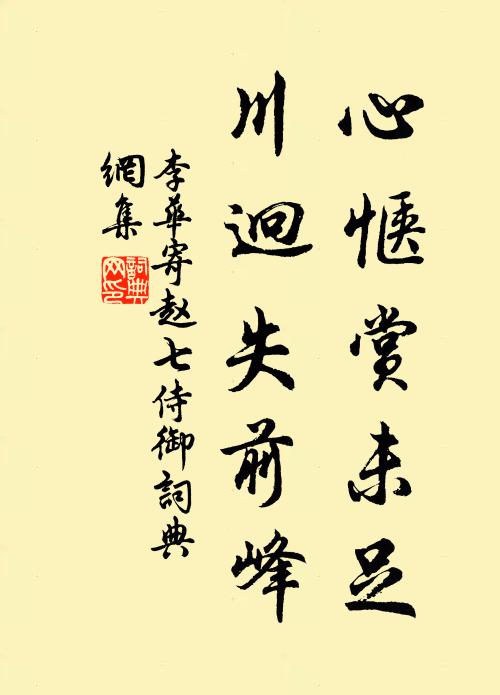 心惬赏未足
川迴失前峰
李华寄赵七侍御詞典
網集
詞典
网印